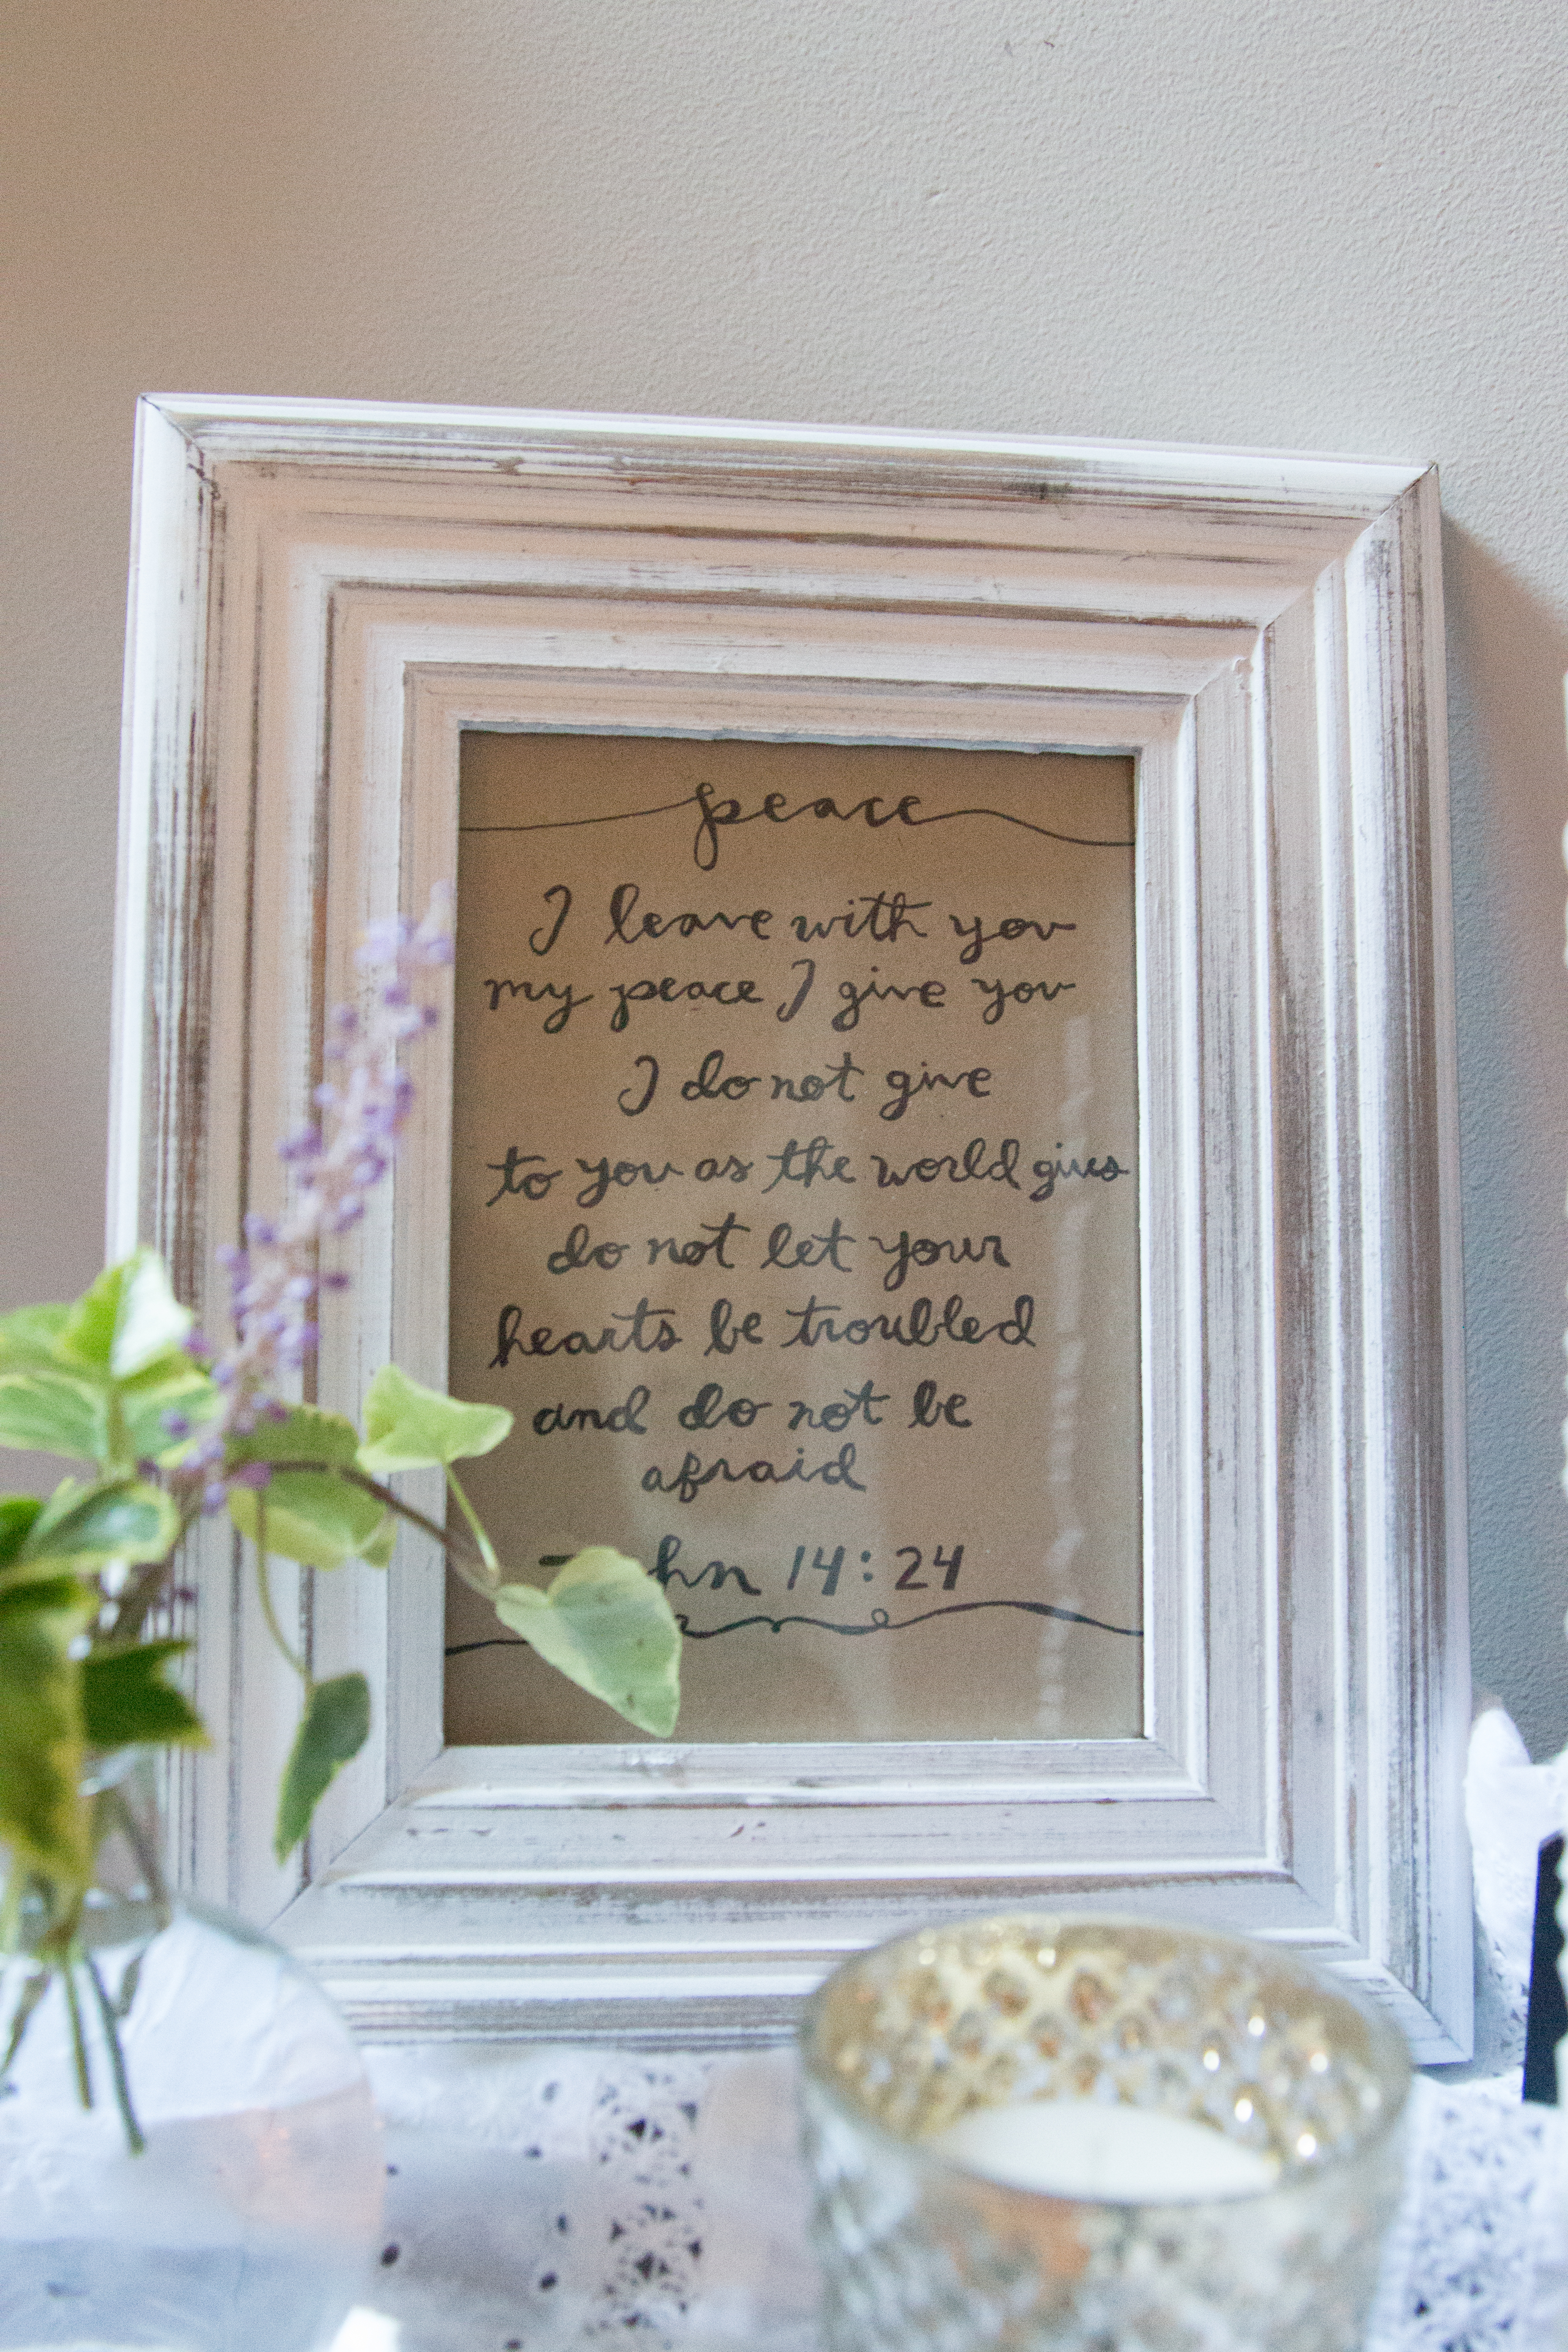 peace
I leave with you
my peace I give you
I do not give
to you as the world gives
do not let your
hearts be troubled
and do not be
afraid
14:24